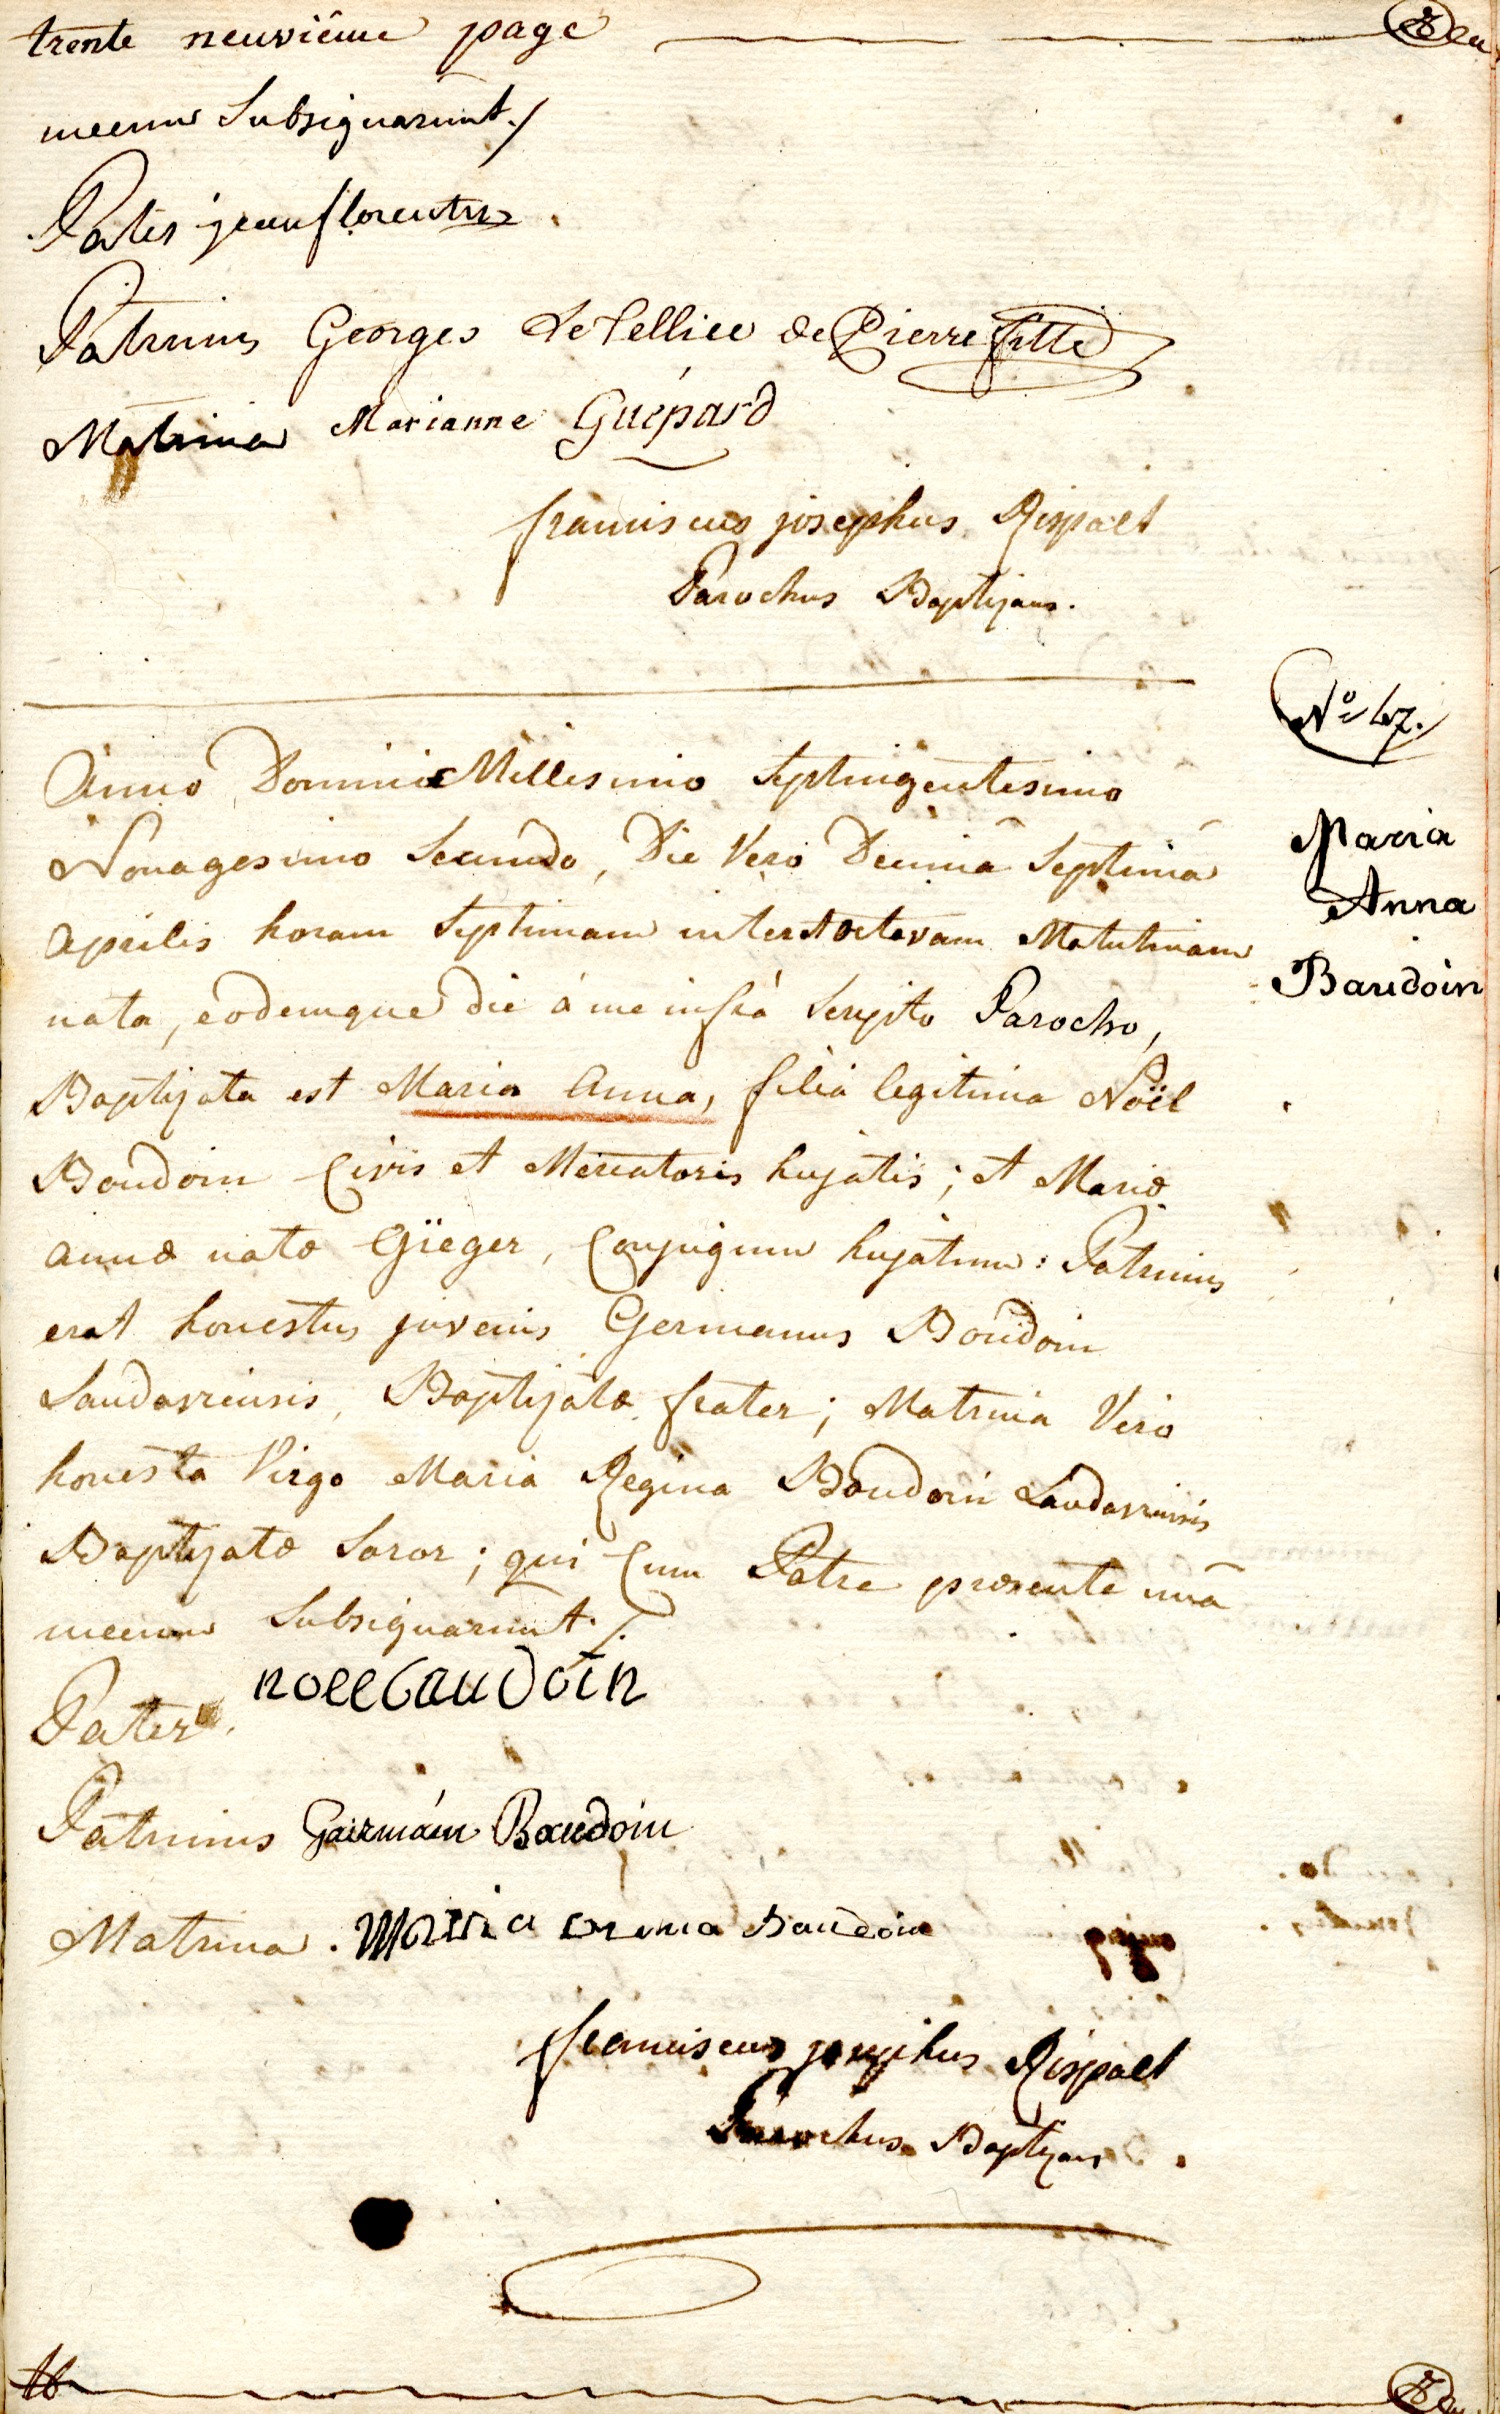 trente neuviême page
mecum Subsignarunt./
Pater jean florentz
Patrinus Georges Le Tellier de Pierre fitte
Matrina Marianne Guépard
franciscus josephus Rispalt
Parochus Baptizans.
N° 47.
Maria
Anna
Baudoin
Anno Domini Millesimo Septingentesimo
Nonagesimo Secundo, Die Vero Decimâ Septimâ
aprilis horam Septimam inter et octavam Matutinam
nata, eodemque die á me infrà Scripto Parocho,
Baptizata est Maria Anna, filia legitima Noël
Baudoin Civis et Mercatoris hujatis; et Mariæ
annæ natæ Gïeger, Conjugum hujatum: Patrinus
erat honestus juvenis Germanus Baudoin
Landaviensis, Baptizatæ frater; Matrina Vero
honesta Virgo Maria Regina Baudoin Landaviensis
Baptizatæ Soror; qui Cum Patre præsente unâ
mecum Subsignarunt./.
Pater. noel baudoin
Patrinus Gairmain Baudoin
Matrina. Maria Baudoin
franciscus josephus Rispalt
Parochus Baptizans